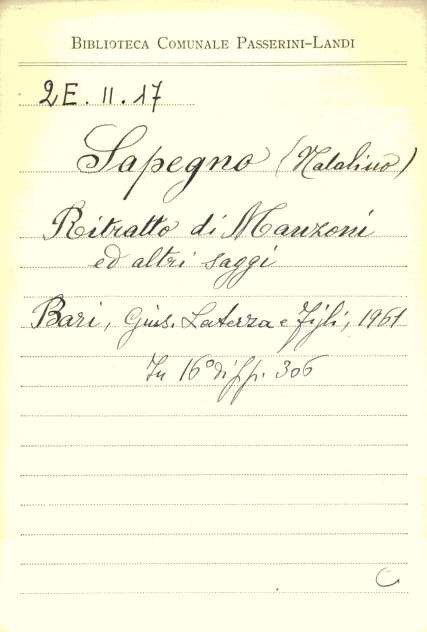 BIBLIOTECA COMUNALE PASSERINI-LANDI
2E. II. 17
Sapegno (Natalino)
Ritratto di Manzoni
ed altri saggi
Bari, Gius. Laterza e Figli, 1961
In 16° di pp. 306
C